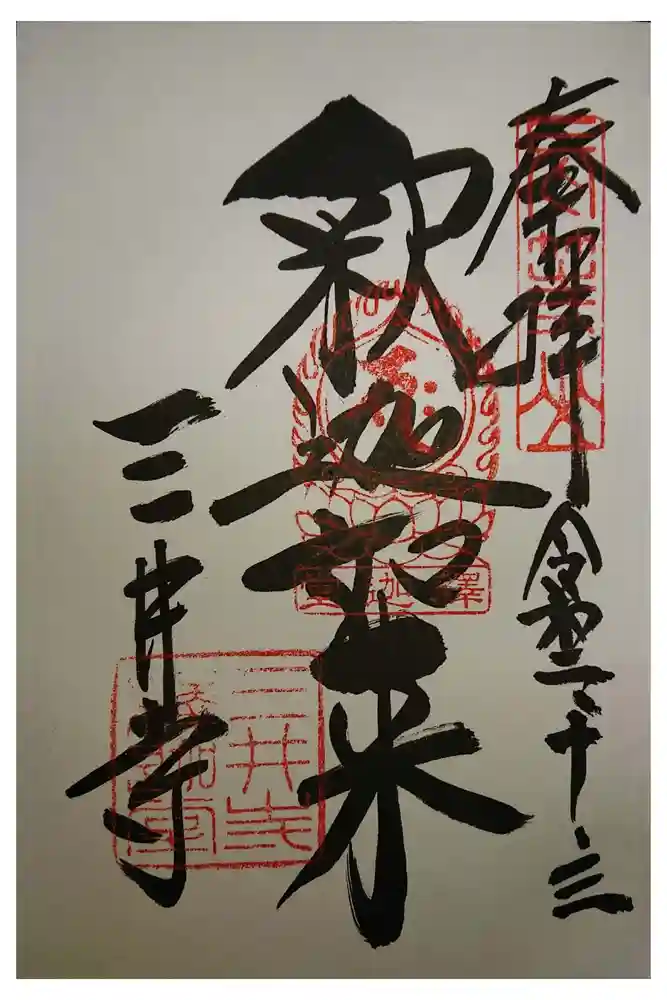 奉拝 令和二・十・三
釈迦如来
三井寺
釋迦堂
三井寺